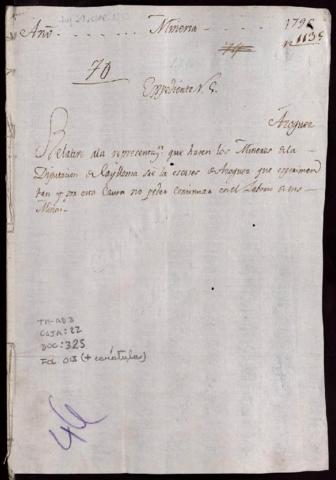 Año Mineria 1796
N 1135
70
Expediente N. 5.
Azogues
Relativo a la representaz.n que hacen los Mineros de la
Diputacion de Caylloma sre la escases de Azogues que experimen
tan y por cuia Causa no poder continuar en el Laboreo de sus
Minas
TM-AD3
CAJA: 22
DOC: 325
Fol 013 (+ carátulas)
46